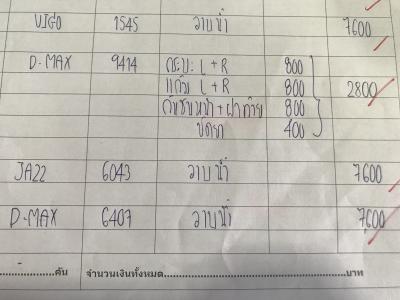 VIGO 1545 อาบน้ำ 7600
D-MAX 9414 กระบะ L+R 800
แก้ม L+R 800 2800
กันชนหน้า+ฝาท้าย 800
ขัดยา 400
JA22 6043 อาบน้ำ 7600
D-MAX 6407 อาบน้ำ 7600
คัน จำนวนเงินทั้งหมด บาท